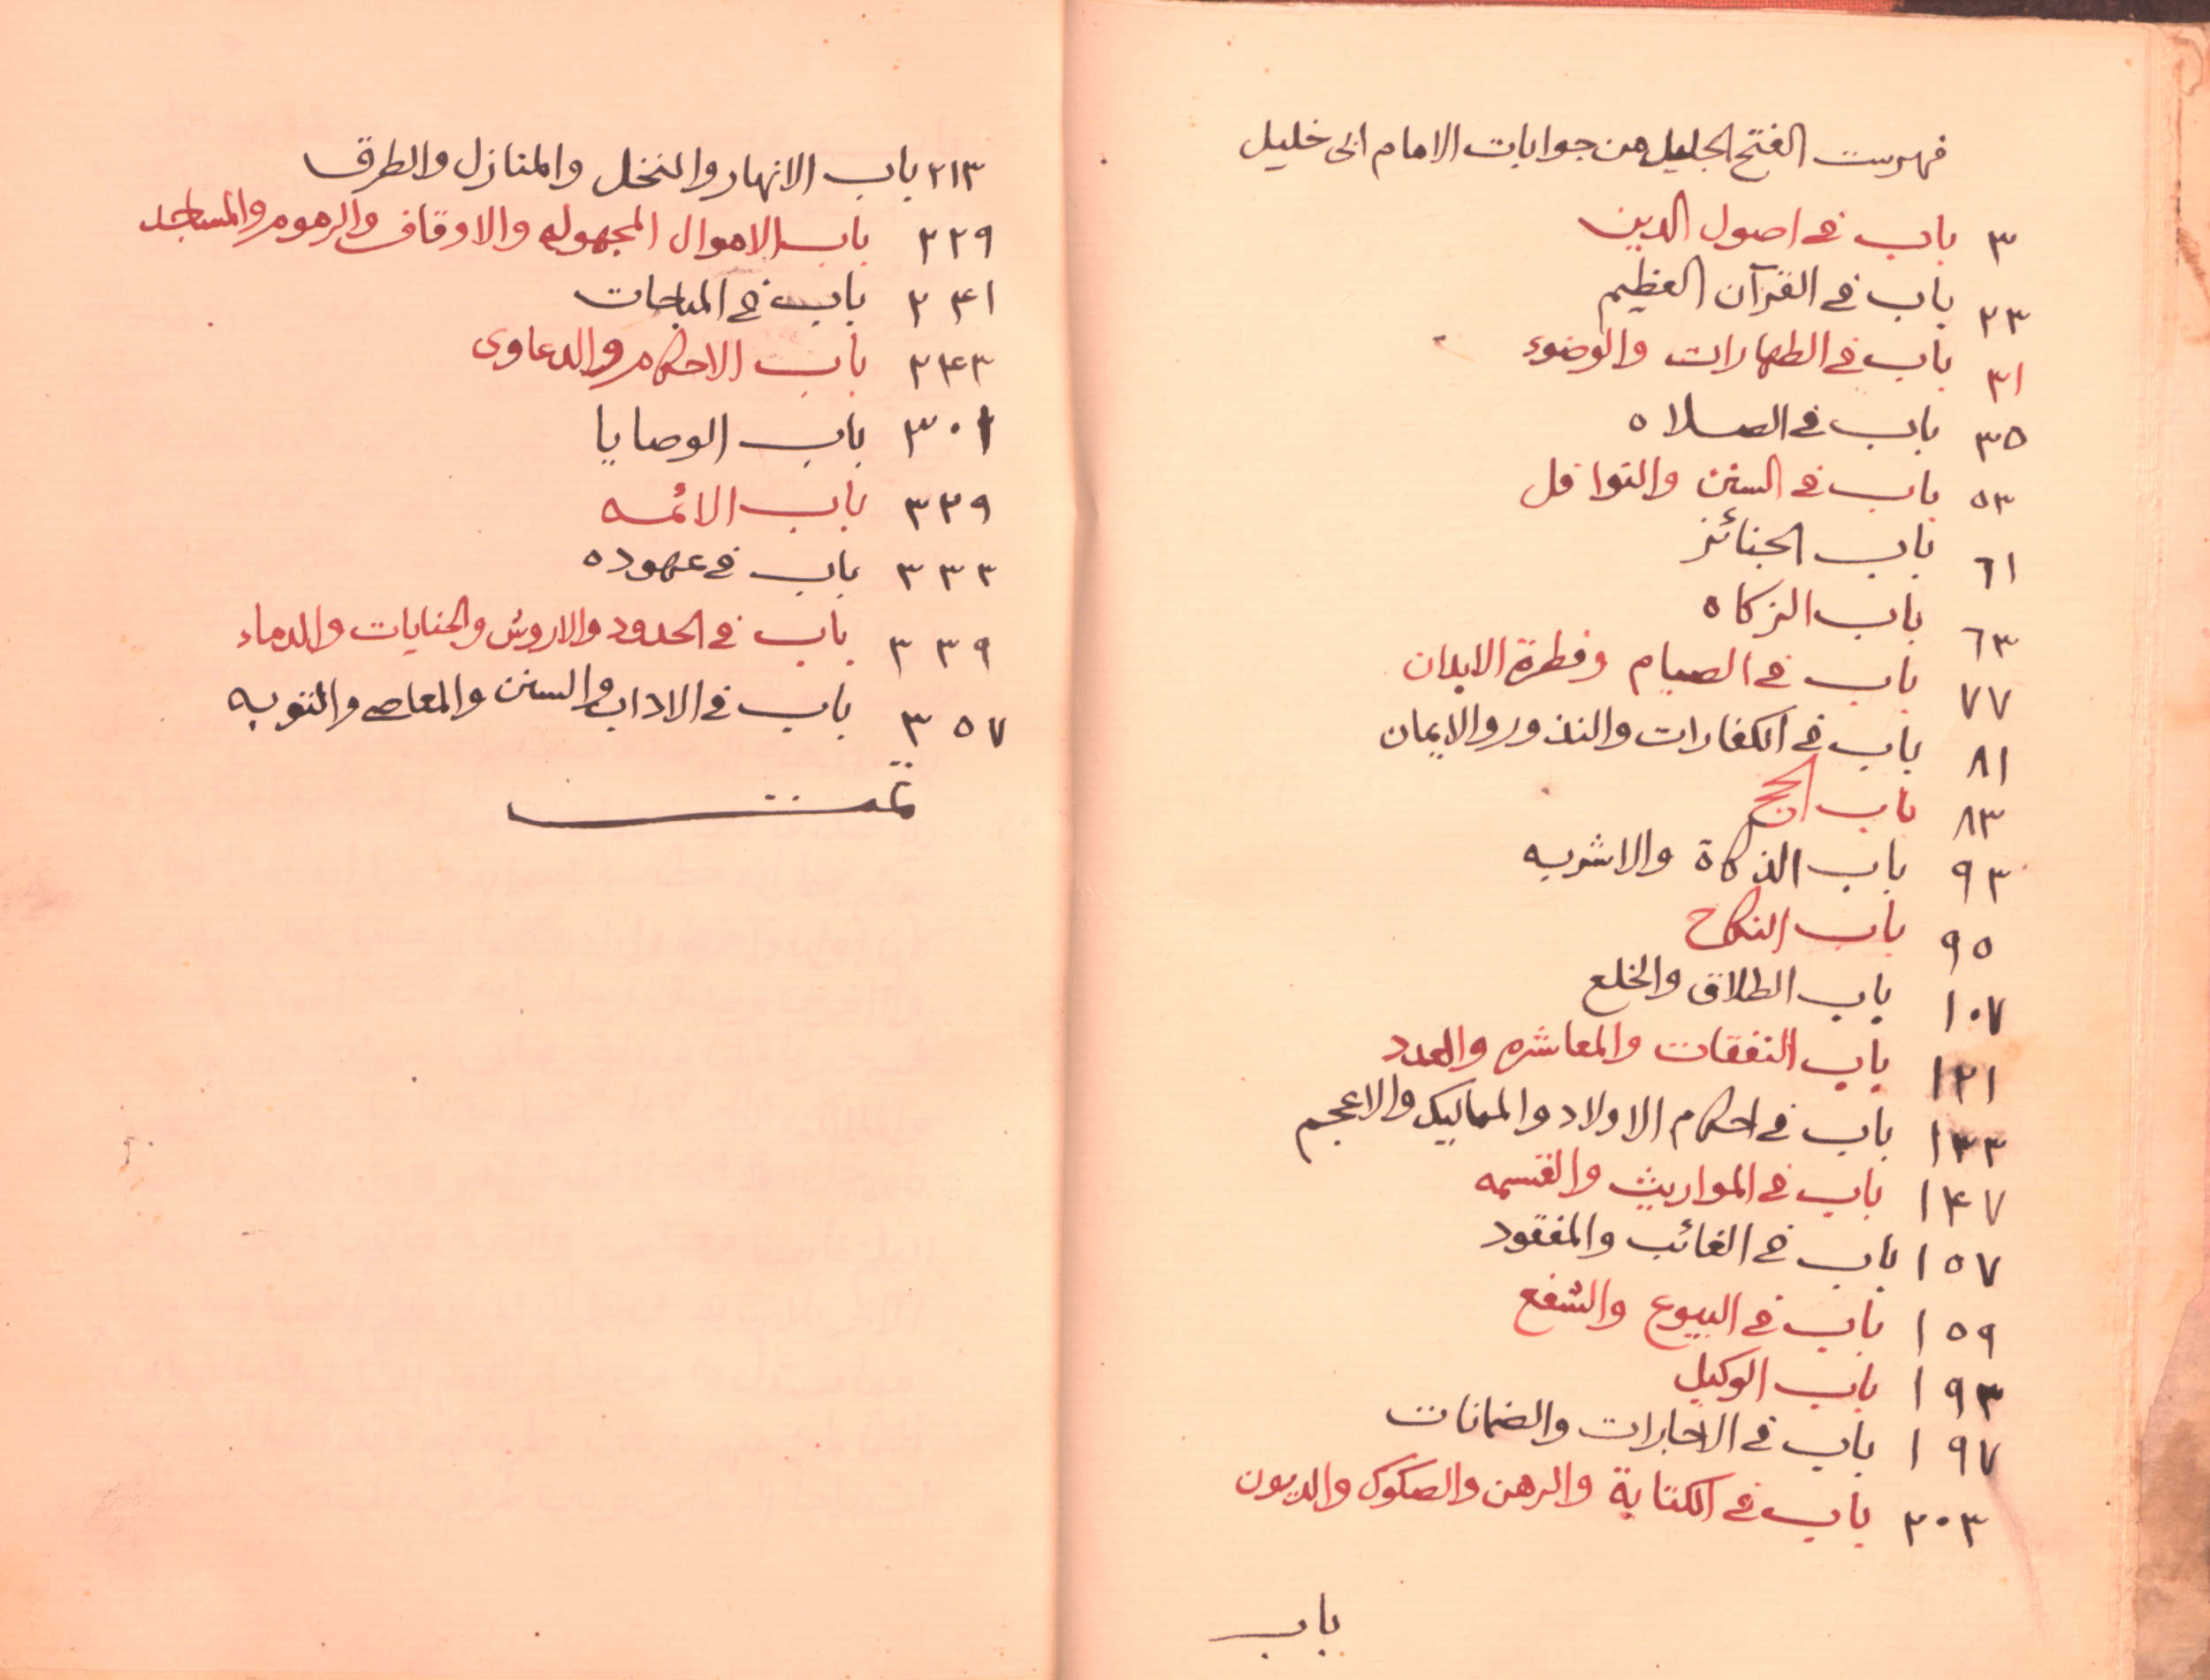 فهرست الفتح الجليل من جوابات الامام ابى خليل
٣ باب في اصول الدين
٢٣ باب في القرآن العظيم
٣١ باب في الطهارات والوضوء
٣٥ باب في الصلاه
٥٣ باب في السنن والنوافل
٦١ باب الجنائز
٦٣ باب الزكاه
٧٧ باب في الصيام وفطرة الابدان
٨١ باب في الكفارات والنذور والايمان
٨٣ باب الحج
٩٣ باب الذكاة والاشربه
٩٥ باب النكاح
١٠٧ باب الطلاق والخلع
١٢١ باب النفقات والمعاشره والعدد
١٣٣ باب في احكام الاولاد والمماليك والاعجم
١٤٧ باب في المواريث والقسمه
١٥٧ باب في الغائب والمفقود
١٥٩ باب في البيوع والشفع
١٩٣ باب الوكيل
١٩٧ باب في الاجارات والضمانات
٢٠٣ باب في الكتابة والرهن والصكوك والديون
باب
٢١٣ باب الانهار والنخل والمنازل والطرق
٢٢٩ باب الاموال المجهوله والاوقاف والرموم والمساجد
٢٤١ باب في المباحات
٢٤٣ باب الاحكام والدعاوى
٣٠١ باب الوصايا
٣٢٩ باب الائمه
٣٣٣ باب في عهوده
٣٣٩ باب في الحدود والاروش والجنايات والدماء
٣٥٧ باب في الاداب والسنن والمعاصي والتوبه
تمت